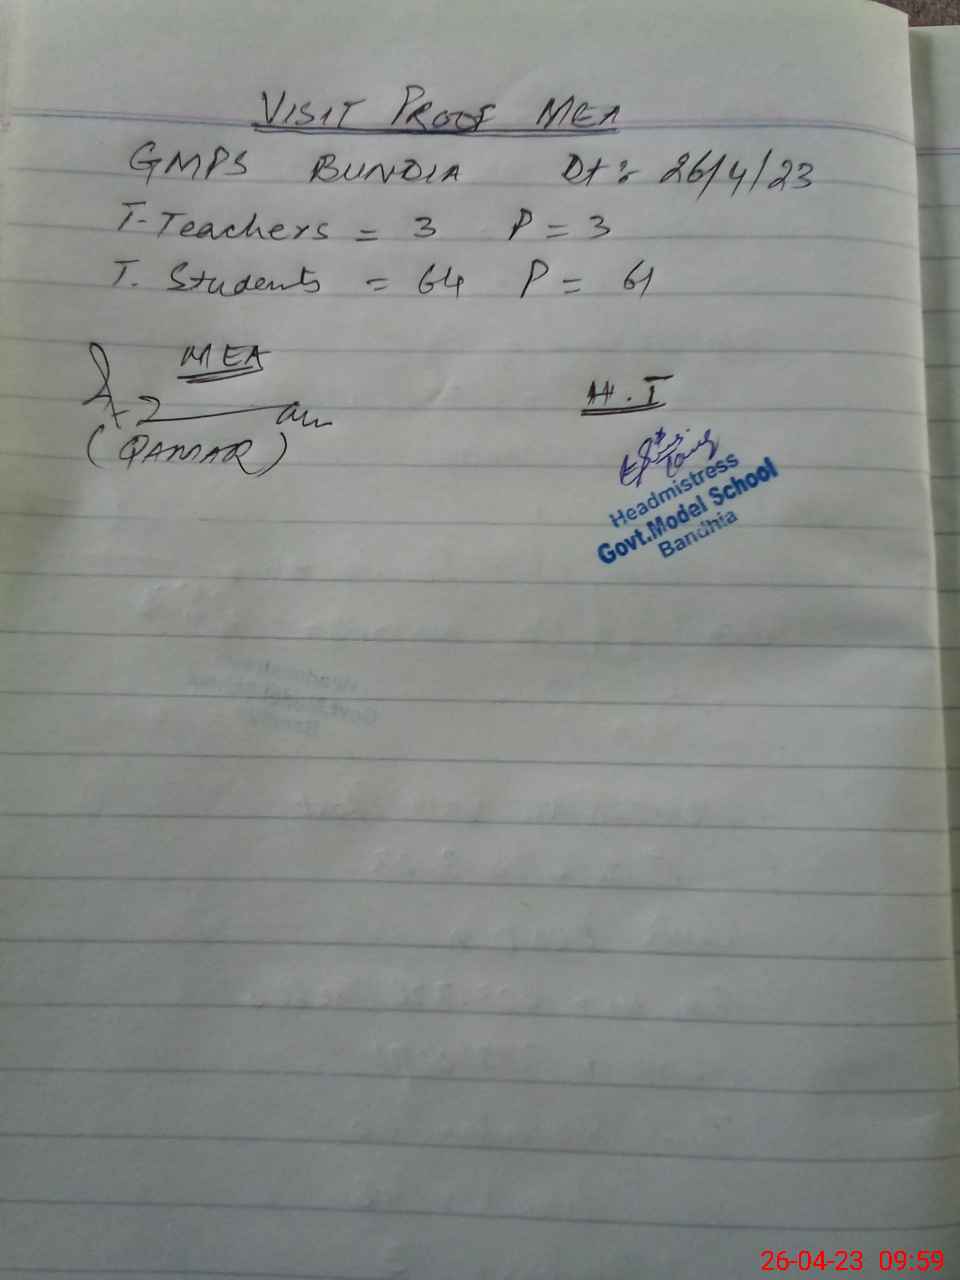 VISIT PROOF MEA
GMPS BUNDIA Dt: 26/4/23
T-Teachers = 3 P = 3
T. Students = 64 P = 61
MEA
(QAMAR)
H.T
Headmistress
Govt.Model School
Bandhia
26-04-23 09:59